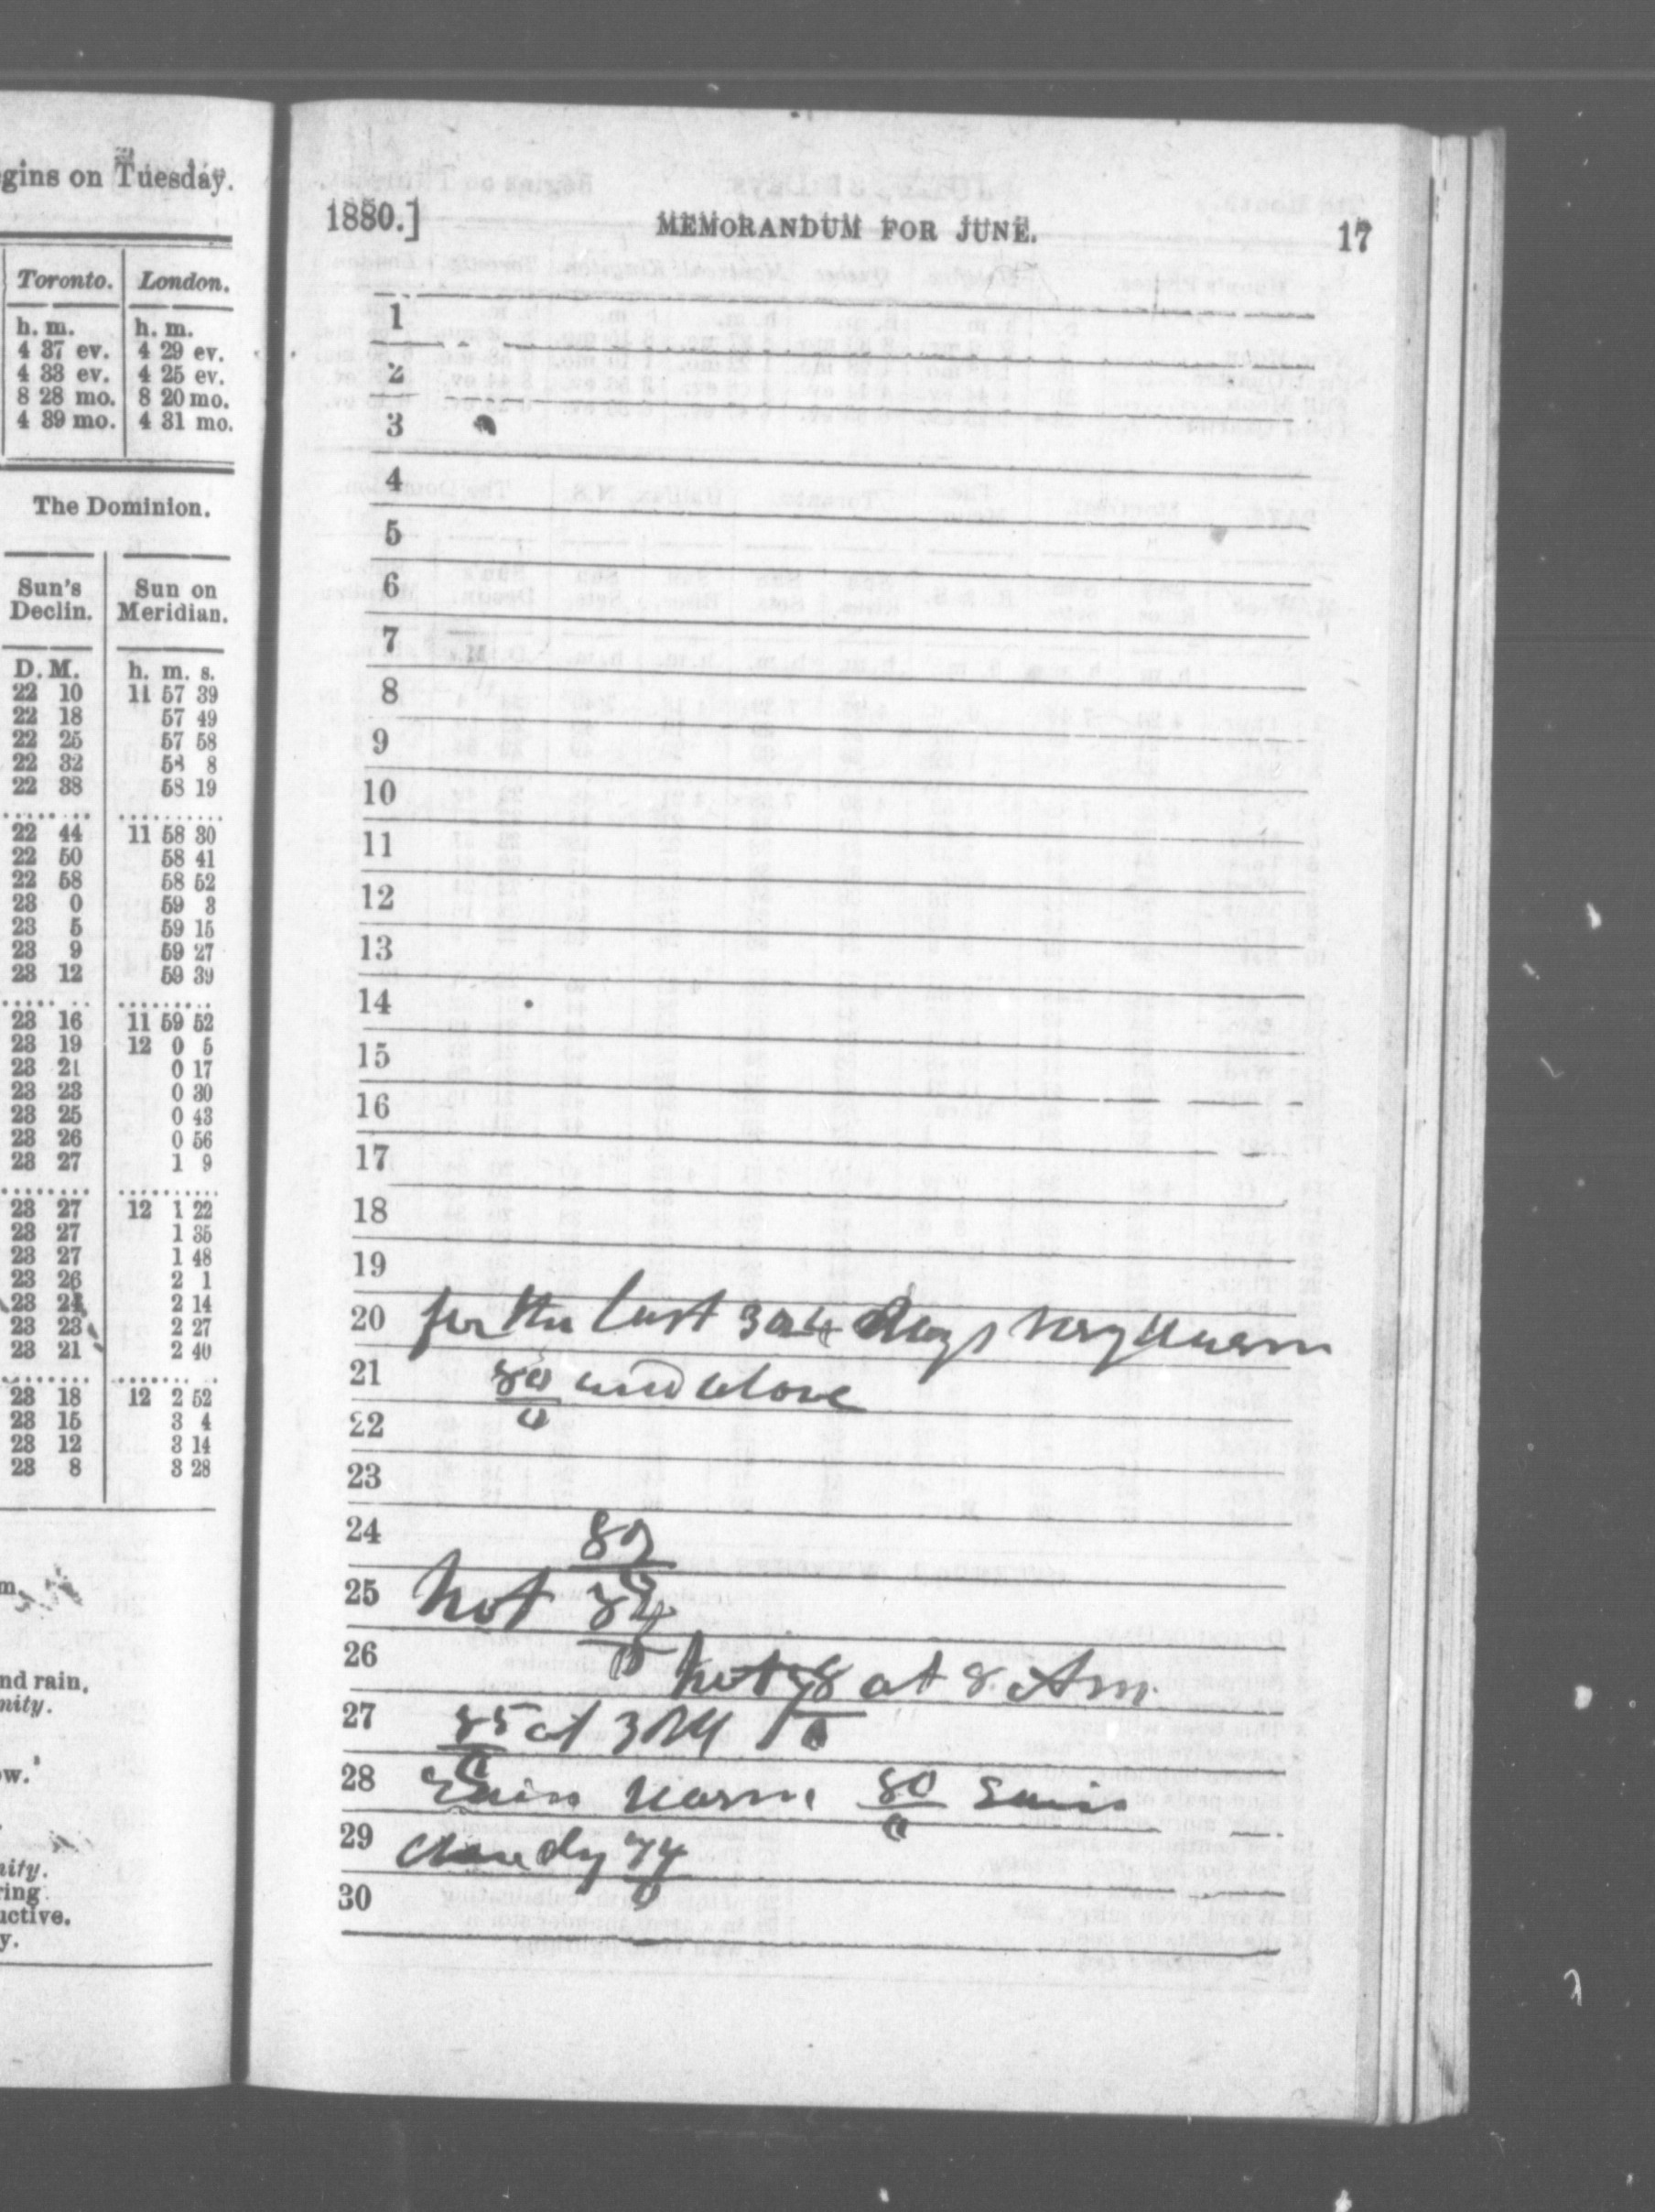 egins on Tuesday.
Toronto. London.
h. m. h. m.
4 37 ev. 4 29 ev.
4 33 ev. 4 25 ev.
8 28 mo. 8 20 mo.
4 39 mo. 4 31 mo.
The Dominion.
Sun's Sun on
Declin. Meridian.
D. M. h. m. s.
22 10 11 57 39
22 18 57 49
22 25 57 58
22 32 58 8
22 38 58 19
22 44 11 58 30
22 50 58 41
22 58 58 52
23 0 59 3
23 5 59 15
23 9 59 27
23 12 59 39
23 16 11 59 52
23 19 12 0 5
23 21 0 17
23 23 0 30
23 25 0 43
23 26 0 56
23 27 1 9
23 27 12 1 22
23 27 1 35
23 27 1 48
23 26 2 1
23 24 2 14
23 23 2 27
23 21 2 40
23 18 12 2 52
23 15 3 4
23 12 3 14
23 8 3 28
m.
nd rain.
nity.
ow.
nity.
ring
uctive.
y.
1880.] MEMORANDUM FOR JUNE. 17
1
2
3
4
5
6
7
8
9
10
11
12
13
14
15
16
17
18
19
20 for the last 3 or 4 days very warm
21 80/0 and above
22
23
24 82
25 hot 84/0
26 hot 78/0 at 8 Am
27 85/0 at 3 PM
28 Rain warm 80/0
29 Cloudy 74/0
30